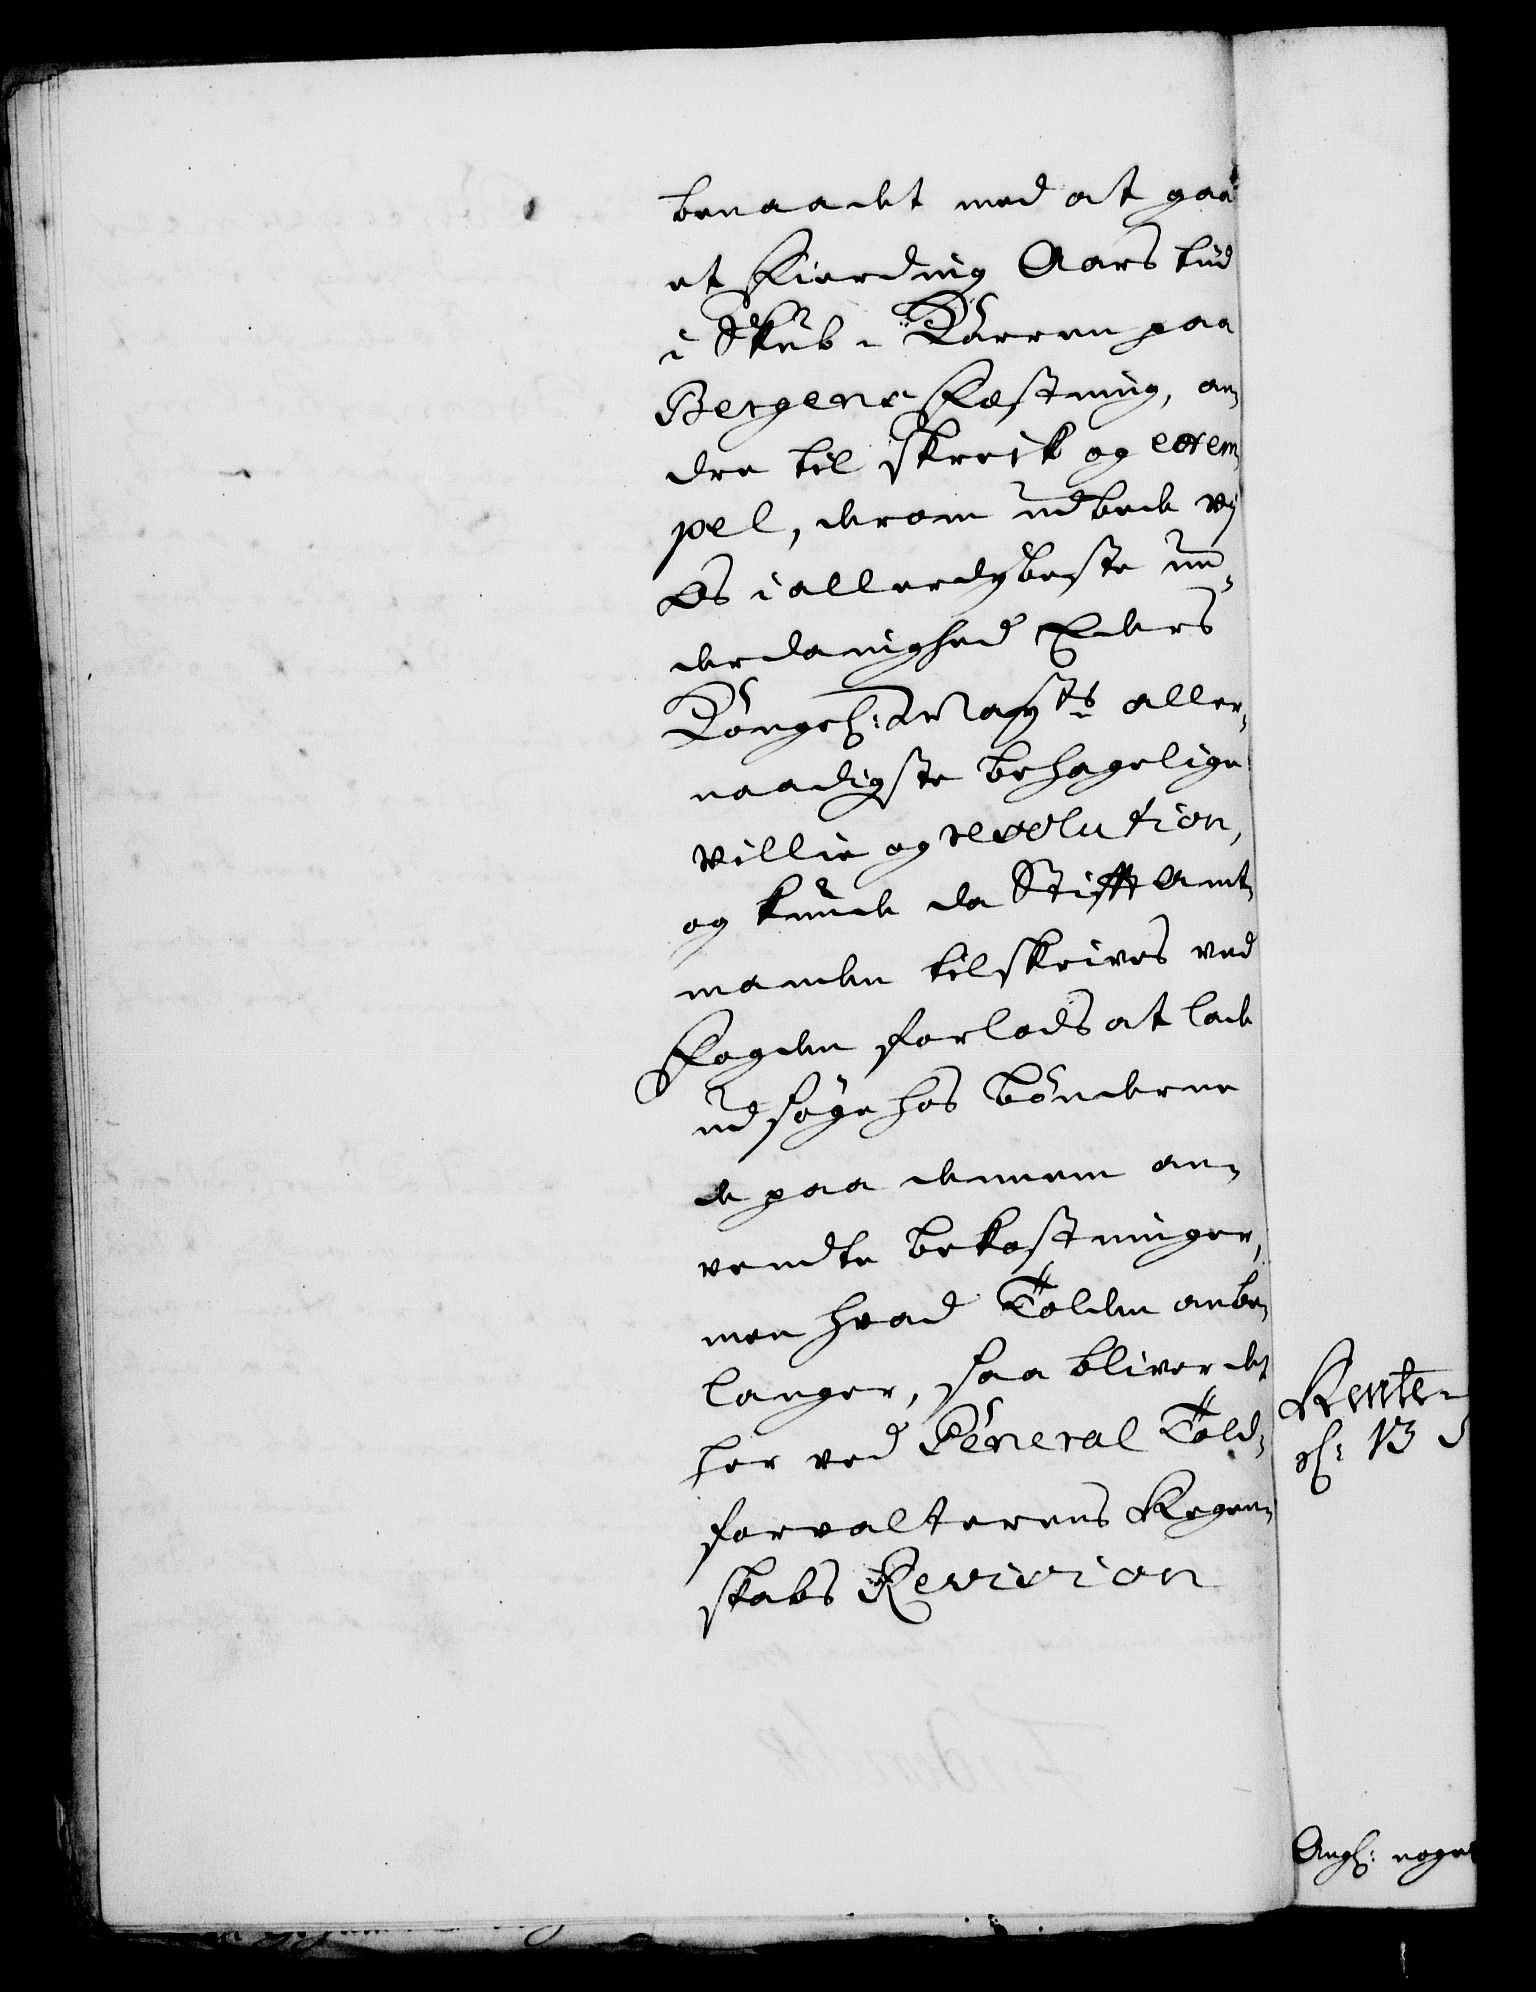 benaadet med at gaa
et Fierding Aars tiid
i Skub-Karren paa
Bergens Fæstning, an-
dre til skreck og exem-
pel, derom udbede vj
Os i allerdybeste un-
derdanighed Eders
Kongel: Mayts aller-
naadigste behagelige
villie og resolution,
og kunde da Stifft Amt-
manden tilskrives ved
Fogden forlods at lade
udsøge hos bønderne
de paa dennem an-
vendte bekostninger,
men hvad Tolden anbe-
langer, saa bliver det
her ved General Told-
forvalterens Regen-
skabs Revision
Rente-
13
Angl: noget